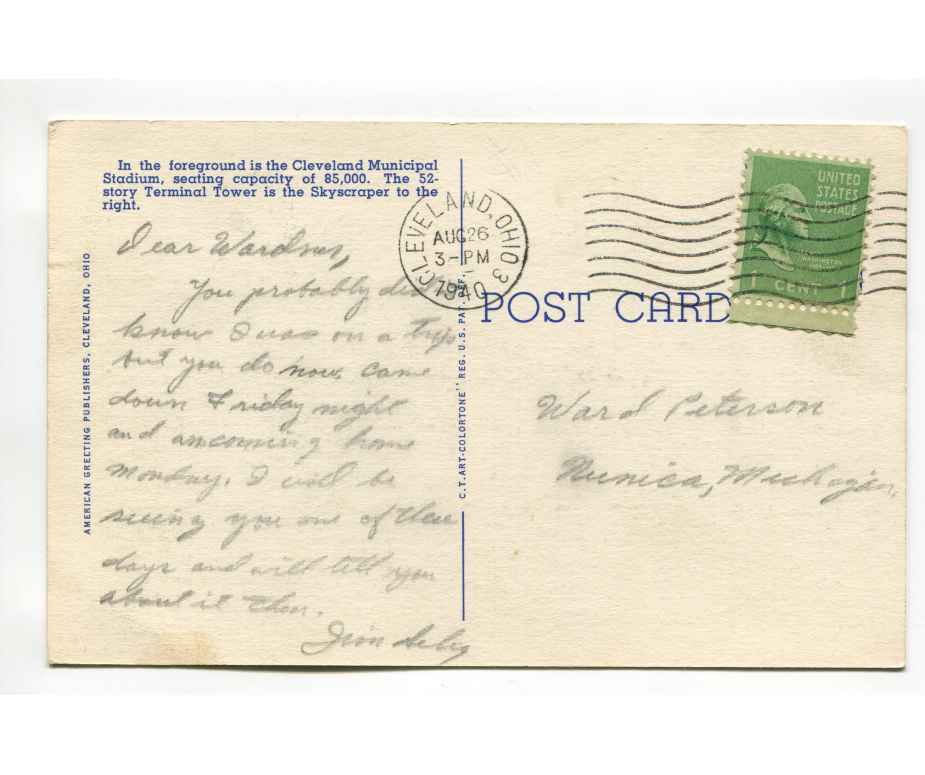 In the foreground is the Cleveland Municipal
Stadium, seating capacity of 85,000. The 52-
story Terminal Tower is the Skyscraper to the
right.
Dear Wardner,
You probably didn't
know I was on a trip
but you do now. Came
down Friday night
and am coming home
Monday. I will be
seeing you one of these
days and will tell you
about it then.
Jim
AMERICAN GREETING PUBLISHERS, CLEVELAND, OHIO
C.T. ART-COLORTONE" REG. U.S. PAT. OFF.
CLEVELAND, OHIO 3
AUG 26
3-PM
1940
UNITED
STATES
POSTAGE
WASHINGTON
1 CENT 1
POST CARD
Ward Peterson
Nunica, Michigan.